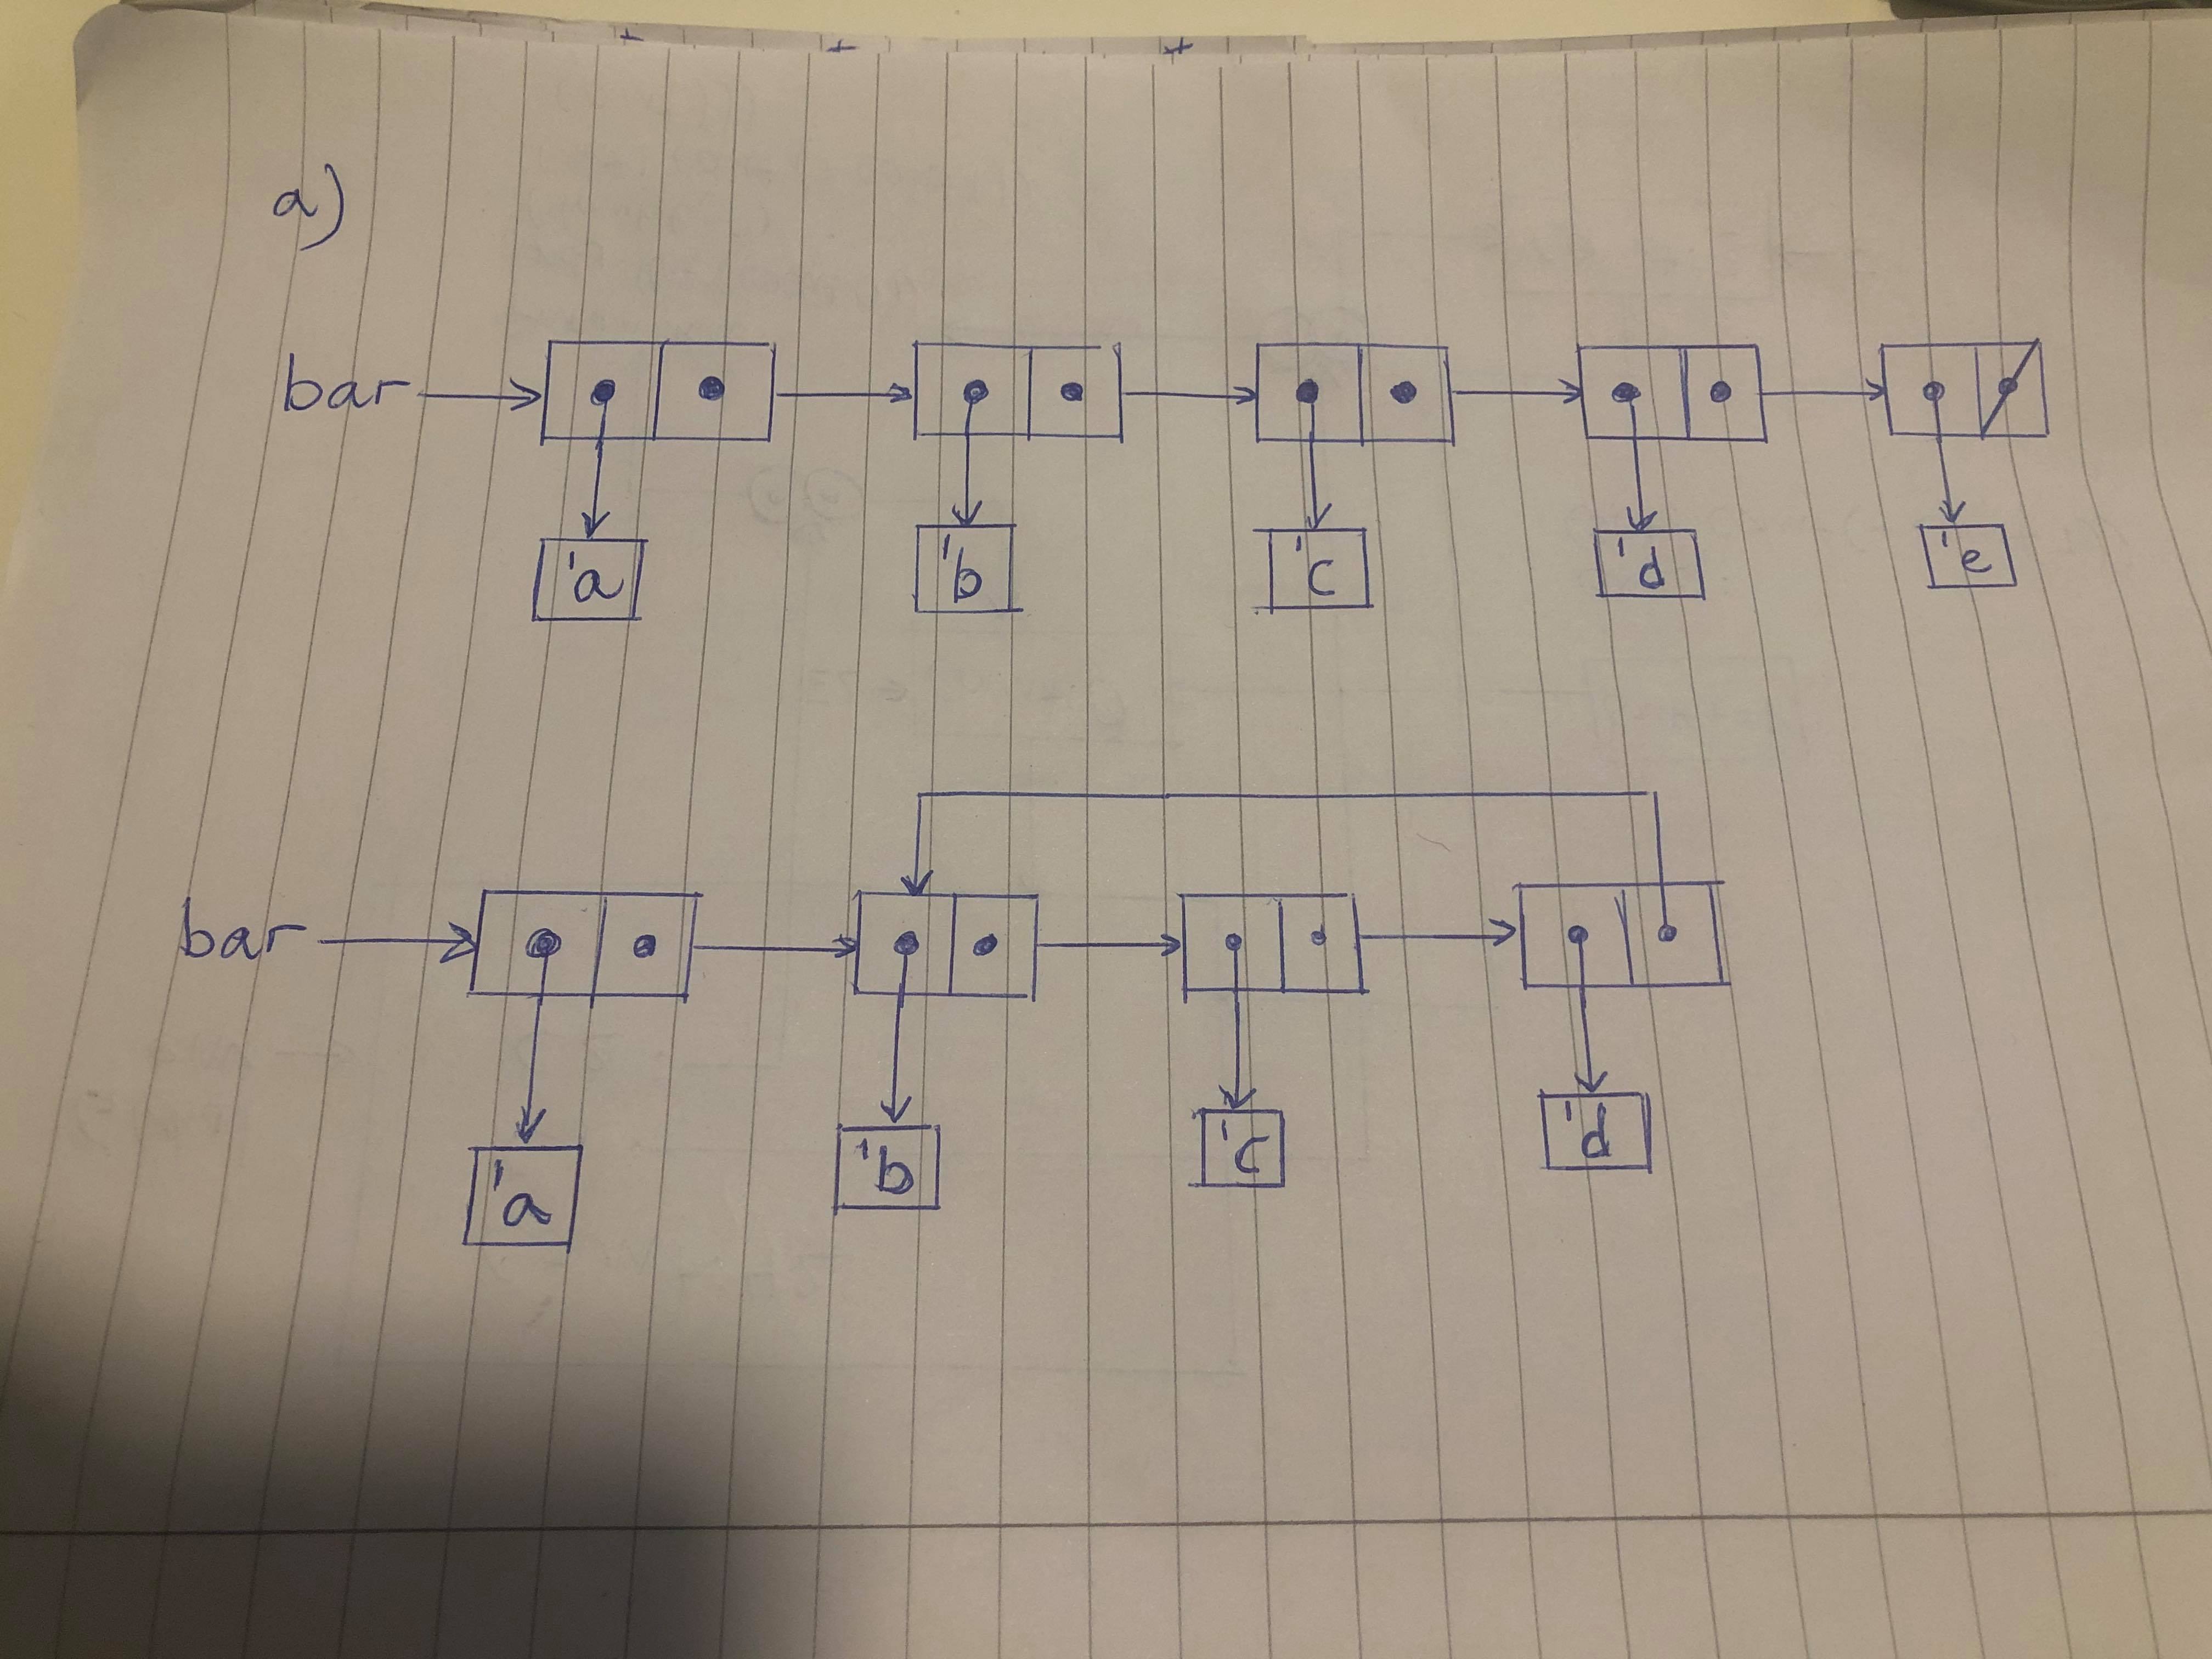 a)
bar
'a 'b 'c 'd 'e
bar
'a 'b 'c 'd